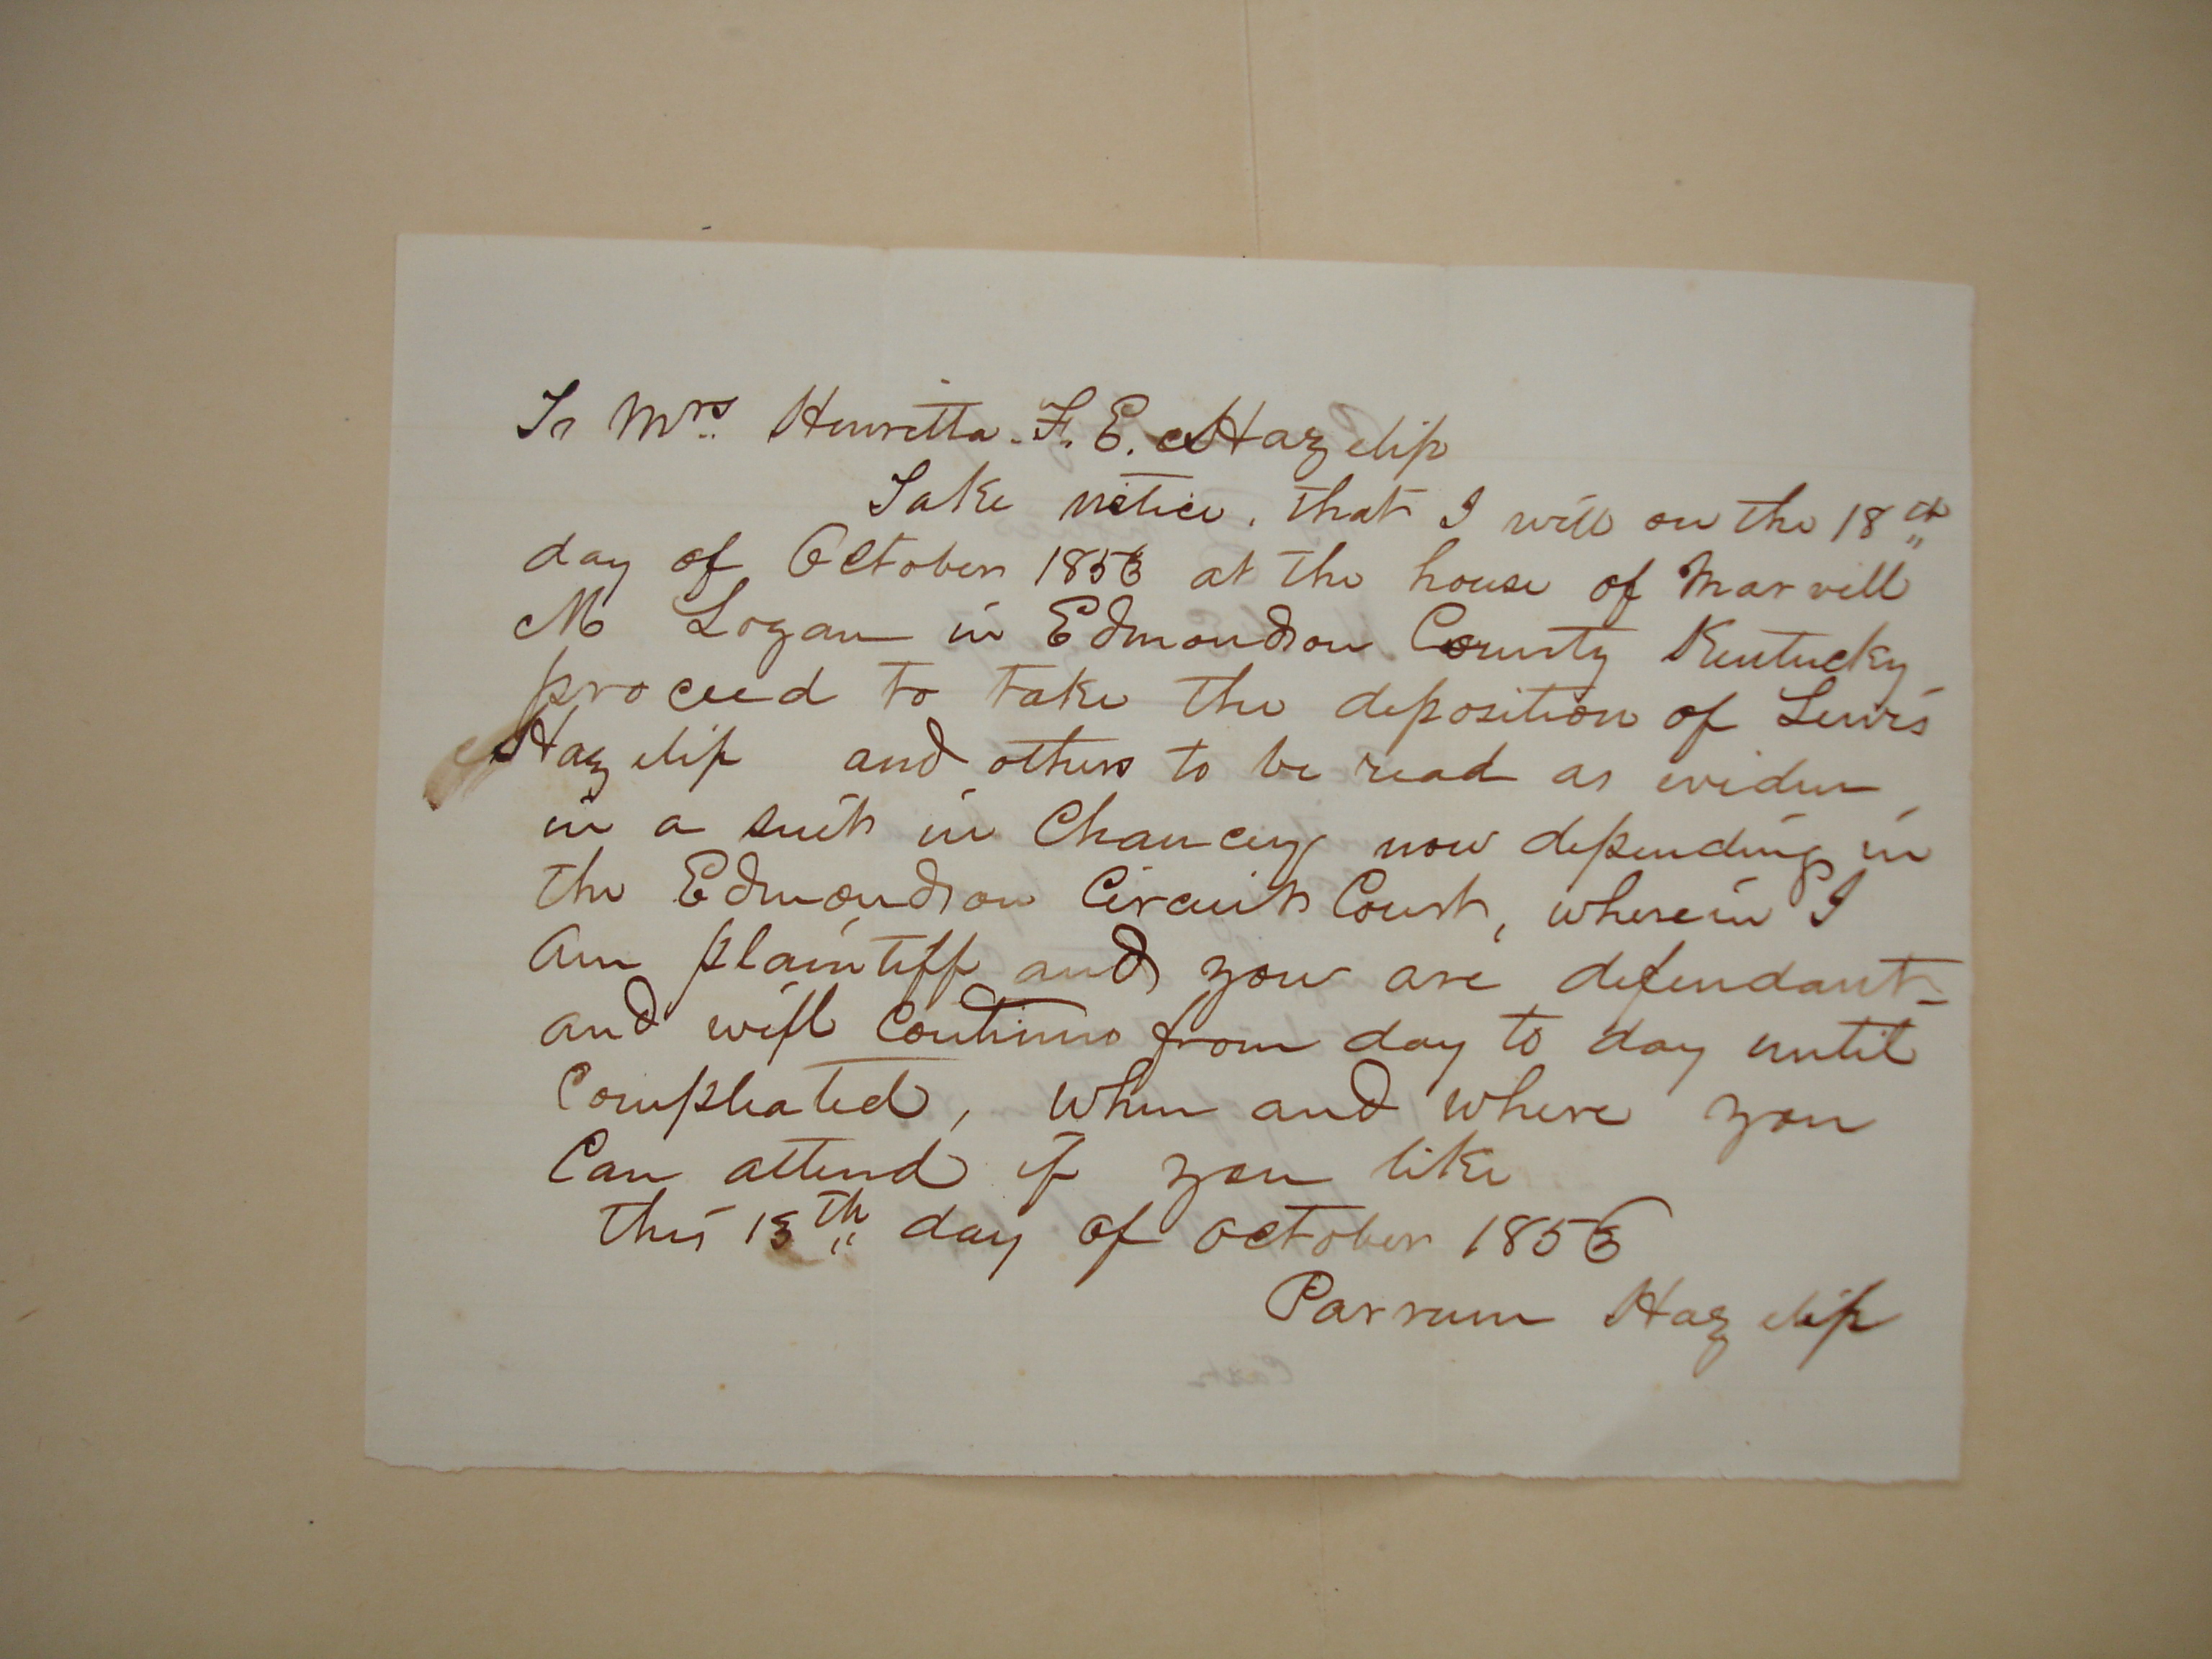 To Mrs. Henretta. F. E. Hazelip
Take notice, that I will on the 18th
day of October 1856 at the house of Marvell
M Logan in Edmondson County Kentucky
proceed to take the deposition of Lewis
Hazelip and others to be read as eviden
in a suit in Chancey now depending in
the Edmondson Circuit Court, wherein I
Am plaintiff and you are defendant-
and will Continue from day to day until
Compleated, when and where you
Can attend if you like
this 13th day of October 1856
Parram Hazelip